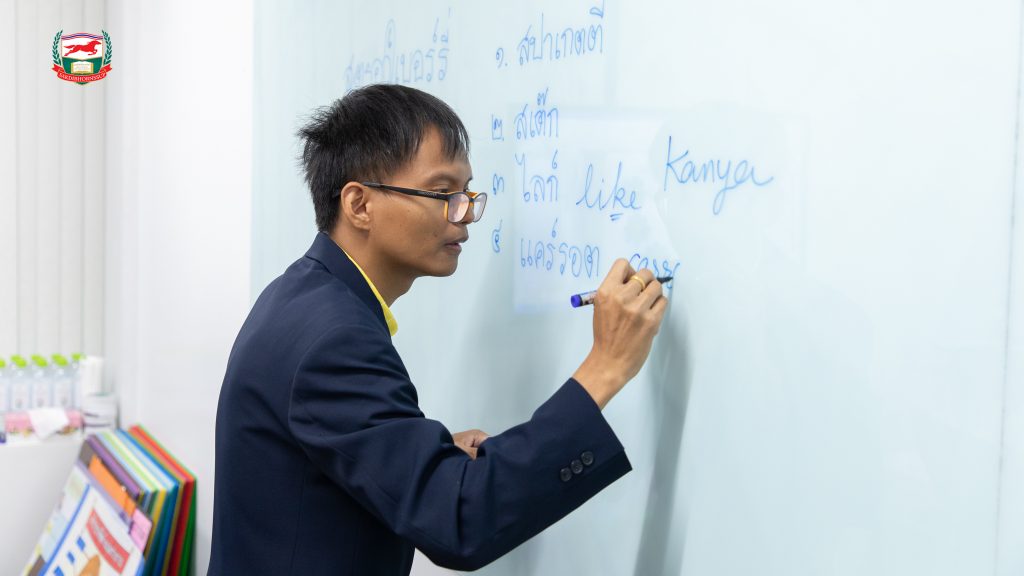 สตรอว์เบอร์รี่
๑. สปาเกตตี
๒ สเต๊ก
๓ ไลก์ like Kanya
๔ แคร์รอต